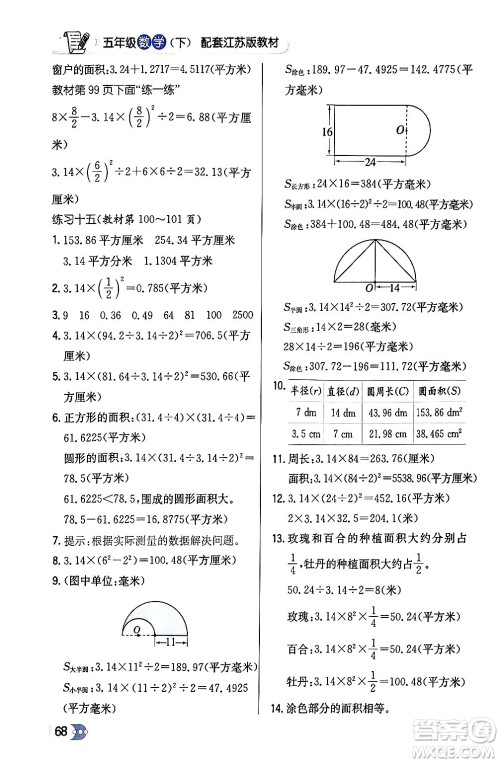 五年级数学(下) 配套江苏版教材
窗户的面积:3.24+1.2717=4.5117(平方米)
教材第99页下面“练一练”
8×8/2+3.14×(8/2)²÷2=6.88(平方厘米)
3.14×(6/2)²÷2+6×6÷2=32.13(平方厘米)
练习十五(教材第100～101页)
1. 153.86平方厘米 254.34平方厘米
3.14平方分米 3.14平方米
2. 3.14×(1/2)²=0.785(平方米)
3. 9 16 0.36 0.49 64 81 100 2500
4. 3.14×(94.2÷3.14÷2)²=706.5(平方米)
5. 3.14×(81.64÷3.14÷2)²=530.66(平方厘米)
6. 正方形的面积:(31.4÷4)×(31.4÷4)=
61.6225(平方米)
圆形的面积:3.14×(31.4÷3.14÷2)²=
78.5(平方米)
61.6225<78.5,围成的圆形面积大。
7. 提示:根据实际测量的数据解决问题。
8. 3.14×(6²-2²)=100.48(平方厘米)
9. (图中单位:毫米)
O 11
S大半圆:3.14×11²÷2=189.97(平方毫米)
S小半圆:3.14×(11÷2)²÷2=47.4925
(平方毫米)
68
S涂色:189.97-47.4925=142.4775(平方毫米)
16 O 24
S长方形:24×16=384(平方毫米)
S半圆:3.14×(16÷2)²÷2=100.48(平方毫米)
S涂色:384+100.48=484.48(平方毫米)
O 14
S半圆:3.14×14²÷2=307.72(平方毫米)
S三角形:14×2=28(毫米)
28×14÷2=196(平方毫米)
S涂色:307.72-196=111.72(平方毫米)
10. 半径(r) 直径(d) 圆周长(C) 圆面积(S)
7 dm 14 dm 43.96 dm 153.86 dm²
3.5 cm 7 cm 21.98 cm 38.465 cm²
11. 周长:3.14×84=263.76(厘米)
面积:3.14×(84÷2)²=5538.96(平方厘米)
12. 3.14×(24÷2)²=452.16(平方米)
2×3.14×(24÷2)=75.36(米)
13. 玫瑰和百合的种植面积大约分别占
1/4,牡丹的种植面积大约占1/2。
50.24÷3.14÷2=8(米)
玫瑰:3.14×8²×1/4=50.24(平方米)
百合:3.14×8²×1/4=50.24(平方米)
牡丹:3.14×8²×1/2=100.48(平方米)
14. 涂色部分的面积相等。